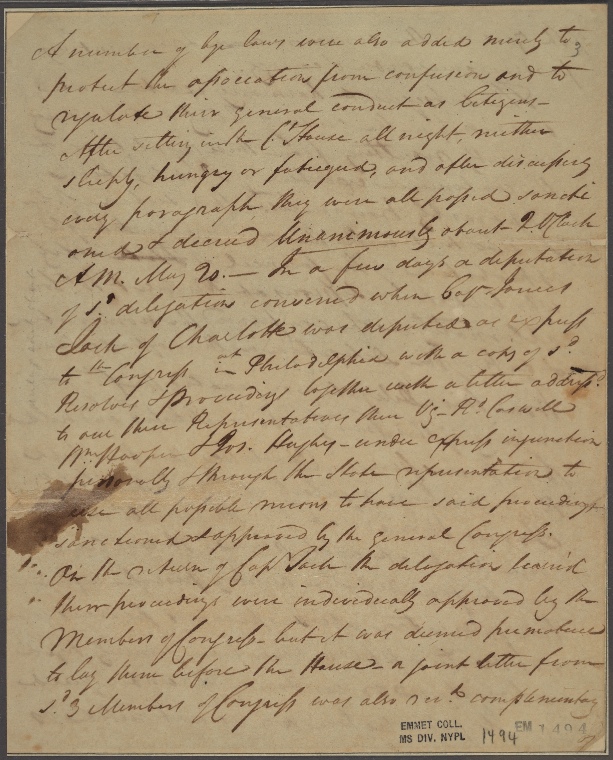 A number of bye laws were also added merely to 3
protect the association from confusion and to
regulate their general conduct as Citizens-
After sitting in the Ct. House all night, neither
sleepy, hungry or fatigued, and after discussing
every paragraph, they were all passed sancti
oned & decreed Unanimously about 2 O'Clock
A.M. May 20.- In a few days a deputation
of sd. delegation convened when Capt James
Jack of Charlotte was deputed as express
to the Congress at Philadelphia with a copy of sd.
Resolves & Proceedings together with a letter addressd.
to our three Representatives there Viz- Rd. Caswell
Wm Hooper & Jos. Hughes- under express injunction
personally & through the State representation to
use all possible means to have said proceedings
sanctioned & approved by the general Congress.
On the return of Capt Jack the delegation learn'd
their proceedings were individually approved by the
Members of Congress- but it was deemed premature
to lay them before the House- a joint letter from
sd. 3 Members of Congress was also recd. complementary
EMMET COLL.
MS DIV. NYPL
1494
EM 7494